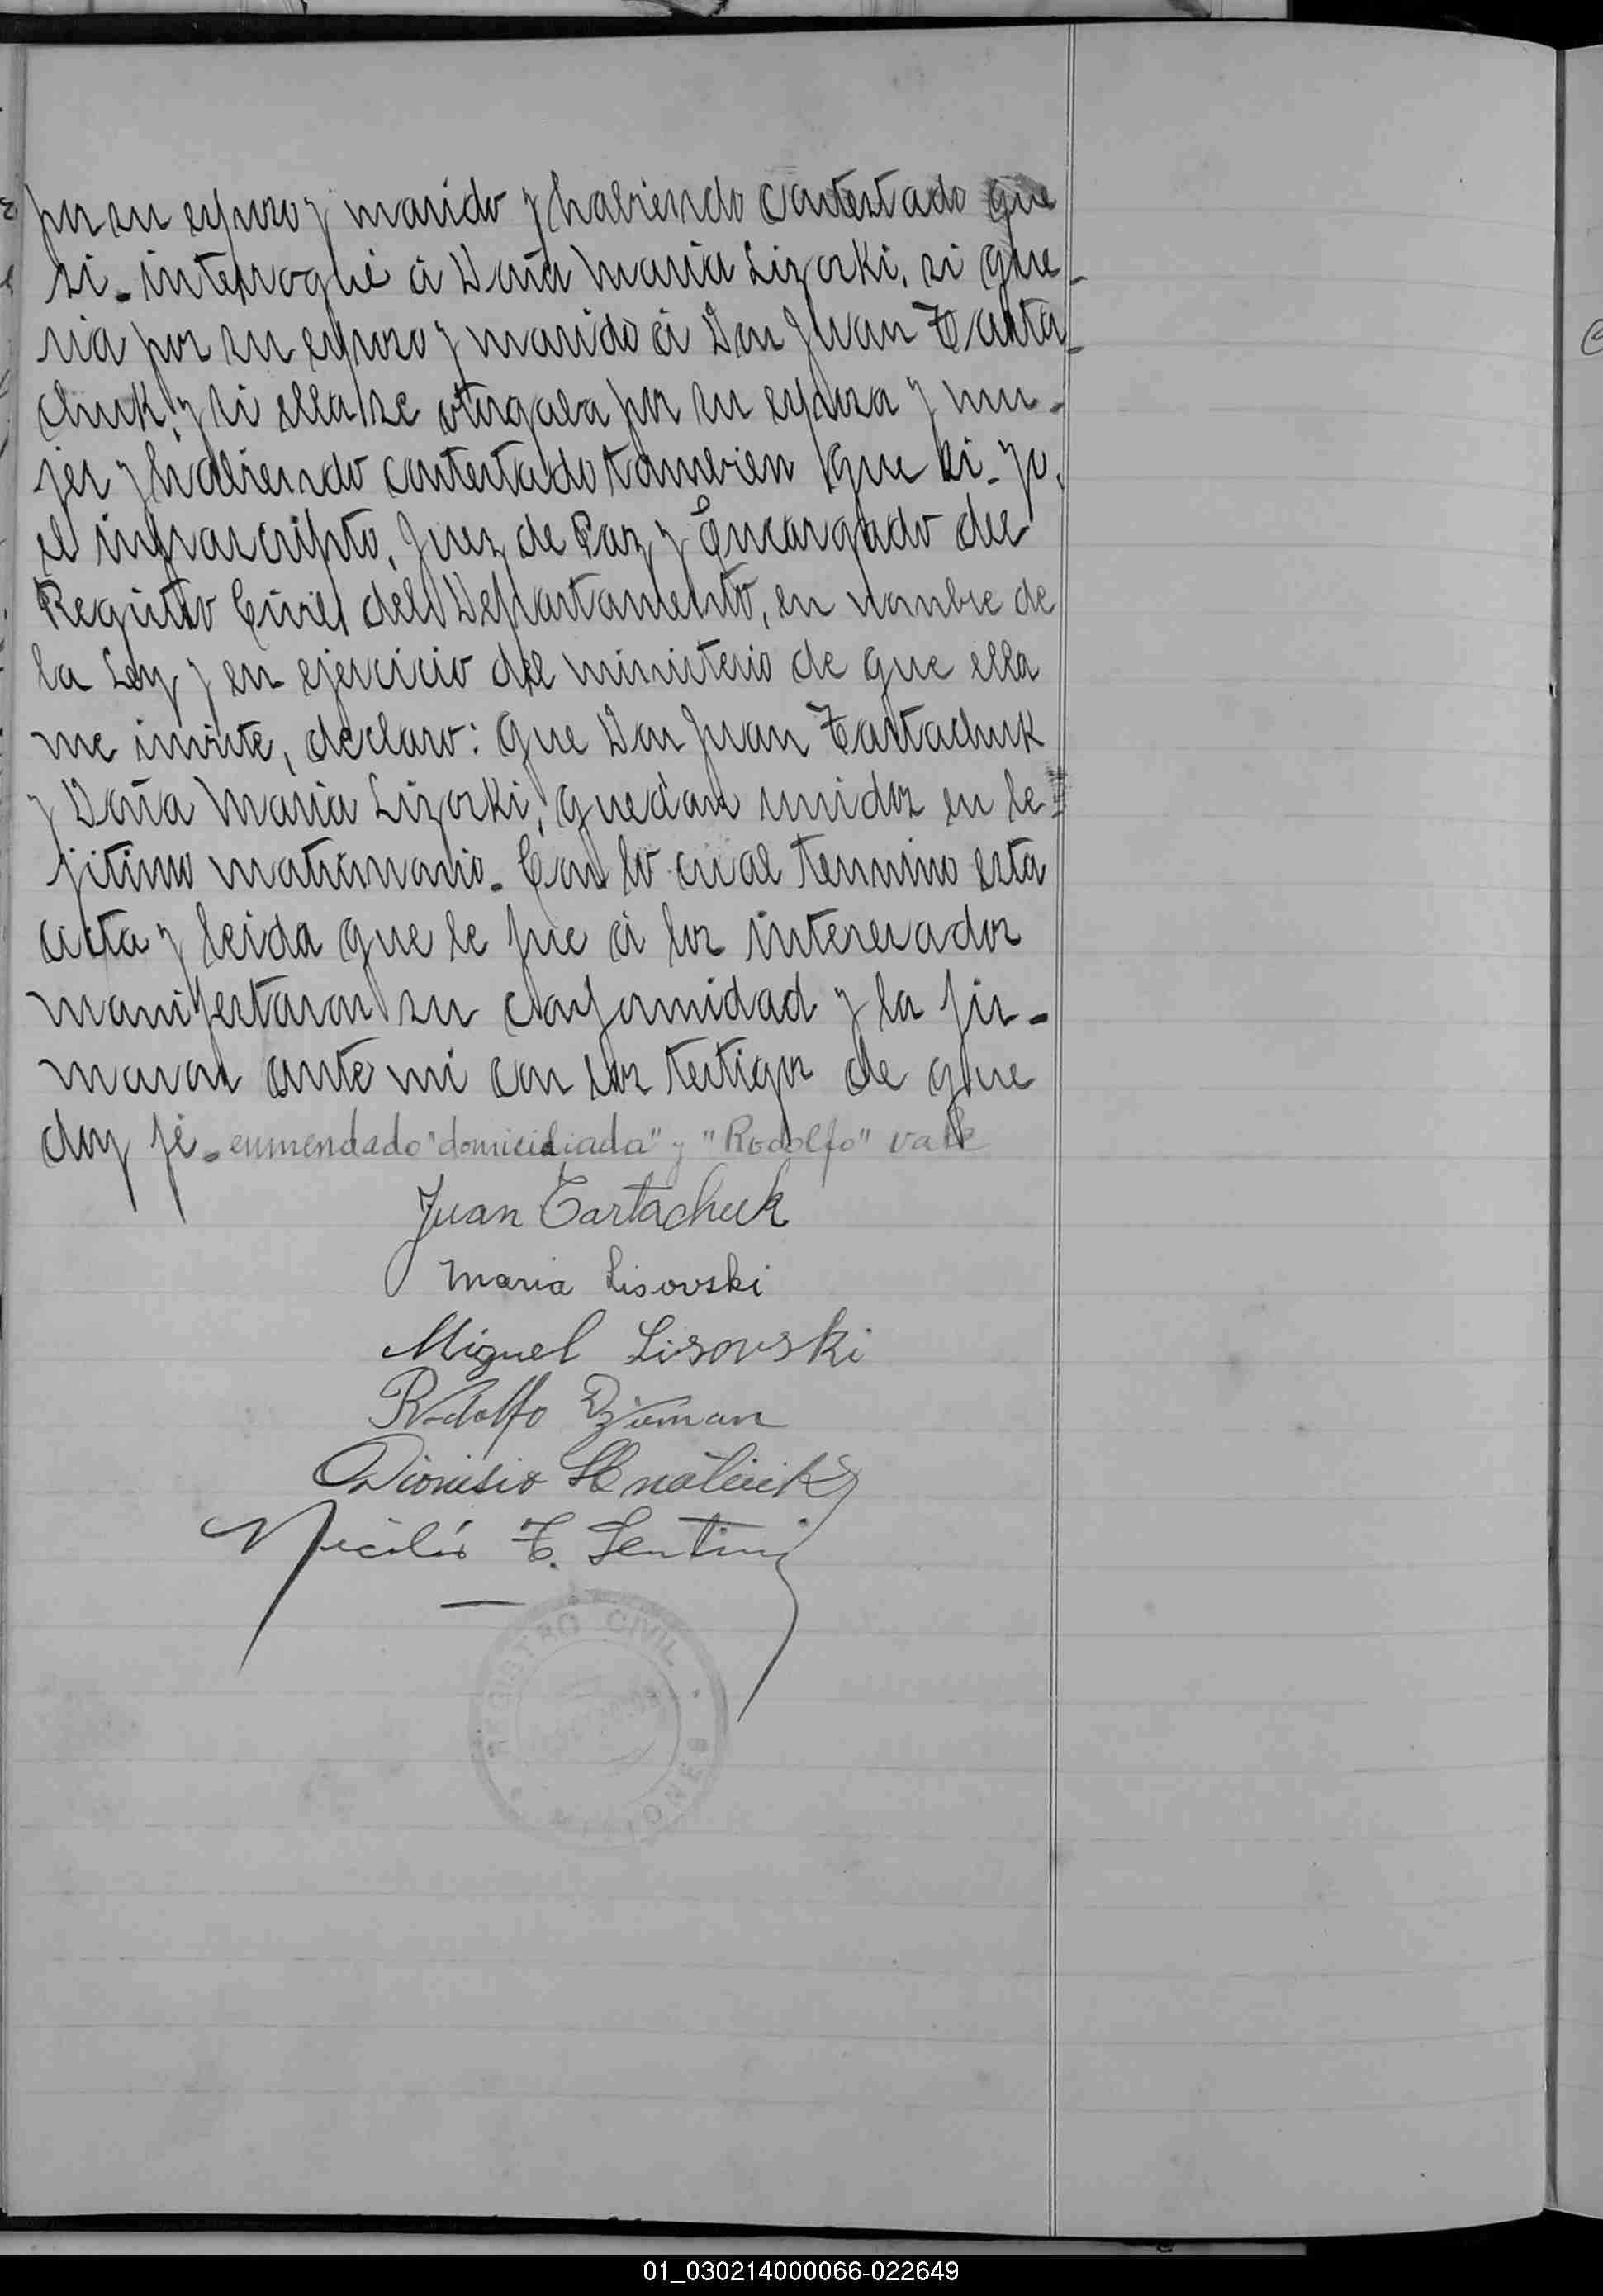 por su esposo y marido y habiendo contestado que
si. interrogué á Doña Maria Lizorki, si que-
ria por su esposo y marido á Don Juan Tarta-
chuk, y si ella se otorgaba por su esposa y mu-
jer y habiendo contestado tambien que si. yo,
el infrascripto, Juez de Paz y Encargado del
Registro Civil del Departamento, en nombre de
la Ley y en ejercicio del ministerio de que ella
me inviste, declaro: Que Don Juan Tartachuk
y Doña Maria Lizorki, quedan unidos en le-
jitimo matrimonio. Con lo cual termino esta
acta y leida que le fue á los interesados
manifestaron su conformidad y la fir-
maron ante mi con los testigos de que
doy fé. enmendado "domiciliada" y "Rodolfo" vale
Juan Tartachuk
Maria Lisovski
Miguel Lisovski
Rodolfo Dziuman
Dionisio
Nicolás T.
REGISTRO CIVIL
MISIONES
01_030214000066-022649